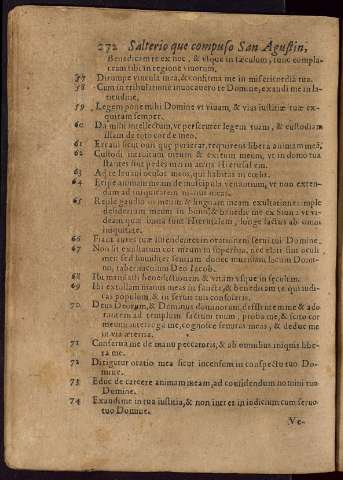 272 Salterio que compuso San Agustin,
Benedicam te ex hoc, & vsque in sæculum, tunc compla-
ceam tibi in regione viuorum.
57 Dirumpe vincula mea, & confirma me in misericordia tua.
58 Cum in tribulatione inuocauero te Domine, exaudi me in la-
titudine.
59 Legem pone mihi Domine vt viuam, & vias iustitiæ tuæ ex-
quiram semper.
60 Da mihi intellectum, vt perscruter legem tuam, & custodiam
illam de toto corde meo.
61 Erraui sicut ouis quæ perierat, require & libera animam meã,
62 Custodi introitum meum & exitum meum, vt in domo tua
stantes sint pedes mei in atrijs Hierusalem.
63 Ad te leuaui oculos meos, qui habitas in cœlis.
64 Eripe animam meam de muscipula venantium, vt non exten-
dam ad iniquitatem manus meas.
65 Reple gaudio os meum & linguam meam exultatione: imple
desiderium meum in bonis, & benedic me ex Sion: vt vi-
deam quæ bona sunt Hierusalem, longe factus ab omni
iniquitate.
66 Fiant aures tuæ intendentes in orationem serui tui Domine.
67 Non sit exaltatum cor meum in superbia, nec elati sint oculi
mei: sed humiliter sentiam donec inueniam locum Domi-
no, tabernaculum Deo Iacob.
68 Ibi manda benedictionem, & vitam vsque in sęculum.
69 Ibi extollam manus meas in sancta, & benedicam te qui iudi-
cas populum, & in seruis tuis consolaris.
70 Deus Deorum, & Dominus dominorum, des intrem me & ado-
rantem ad templum sanctum tuum, proba me, & scito cor
meum: interroga me, cognosce semitas meas, & deduc me
in via æterna.
71 Conserua me de manu peccatoris, & ab omnibus iniquis libe-
ra me.
72 Dirigatur oratio mea sicut incensum in conspectu tuo Do-
mine.
73 Educ de carcere animam meam, ad confitendum nomini tuo
Domine.
74 Exaudi me in tua iustitia, & non intres in iudicium cum seruo
tuo Domine.
Ne-